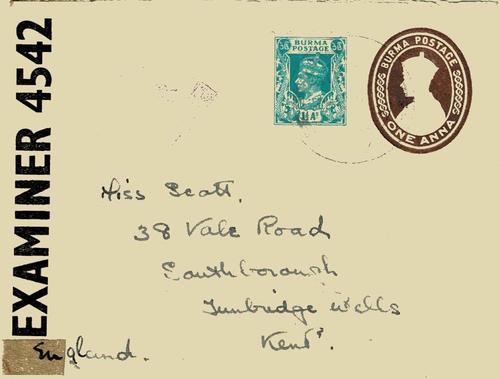 EXAMINER 4542
BURMA
POSTAGE
BURMA POSTAGE
ONE ANNA
Miss Scott,
38 Vale Road
Southborough
Tunbridge Wells
Kent.
England.